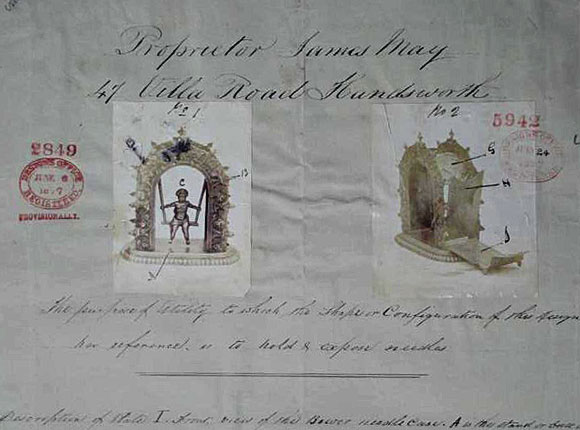 Proprietor James May
47 Villa Road Handsworth
No 1
No 2
2849
5942
DESIGNS OFFICE
JUNE 6
REGISTERED
PROVISIONALLY.
24
C
B
A
G
H
J
The purpose of Utility to which the Shape or Configuration of this Design
has reference, is to hold & expose needles
Description of Plate I. Front view of this Bower needle Case. A is the stand or base